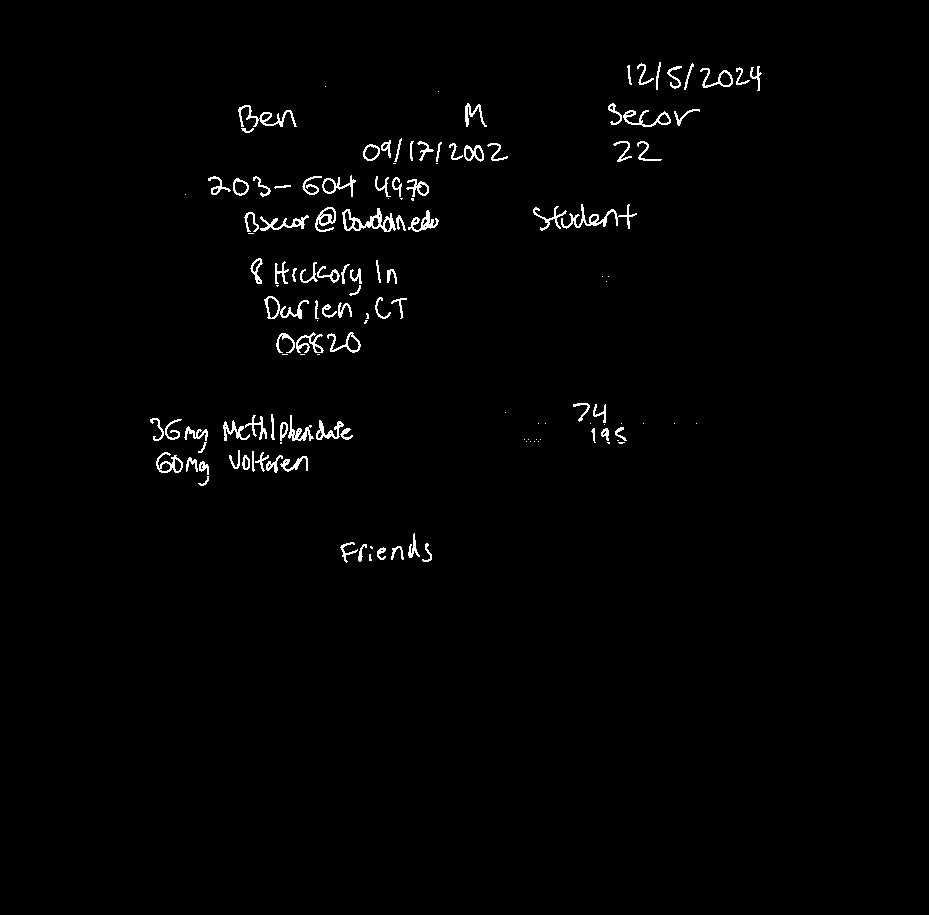 12/5/2024
Ben M Secor
09/17/2002 22
203-604 4970
Bsecor@Bowdoin.edu Student
8 Hickory ln
Darien, CT
06820
74
36mg Methlphenidate 195
60mg Voltaren
Friends